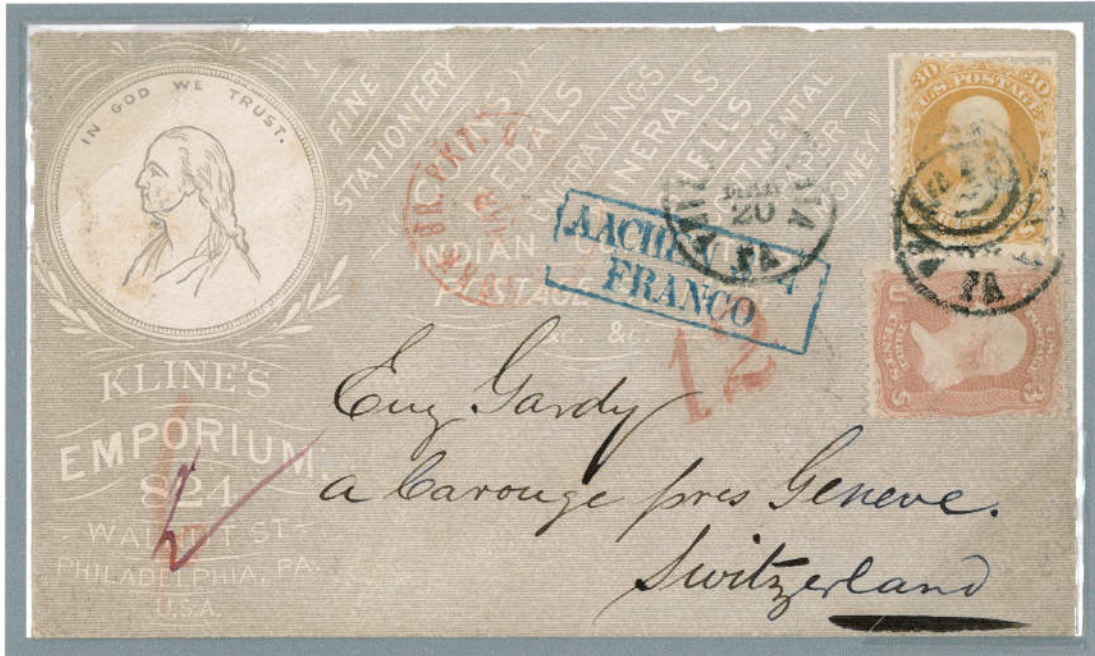 IN GOD WE TRUST.
KLINE'S
EMPORIUM.
824
WALNUT ST
PHILADELPHIA, PA.
U.S.A.
FINE
STATIONERY
COINS
MEDALS
ENGRAVINGS
MINERALS
SHELLS
CONTINENTAL
PAPER-
MONEY"
INDIAN
POSTAGE
&c. &c.
BR. PKT.
AACHEN
FRANCO
12
20
PA
30 30
U.S. POSTAGE
PA
U.S. POSTAGE
THREE CENTS
3
Eug Gardy
a Carouge pres Geneve.
Switzerland